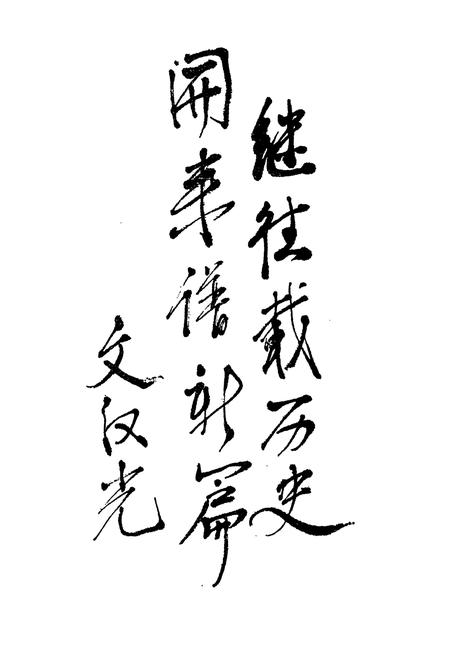 继往载历史
開来谱新篇
文汉光